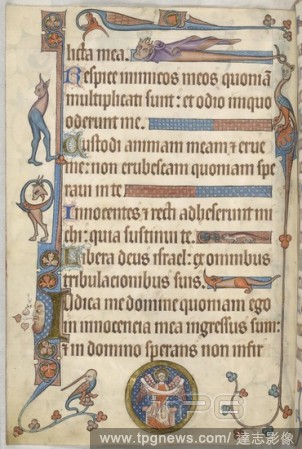 licta mea.
Respice inimicos meos quoniã
multiplicati sunt: et odio iniquo
oderunt me.
Custodi animam meam ⁊ erue
me: non erubescam quoniam spe
raui in te
Innocentes ⁊ recti adheserunt mi
chi: quia sustinui te.
Libera deus israel: ex omnibus
tribulacionibus suis.
Iudica me domine quoniam ego
in innocencia mea ingressus sum:
⁊ in domino sperans non infir
TPG
www.tpgnews.com/達志影像